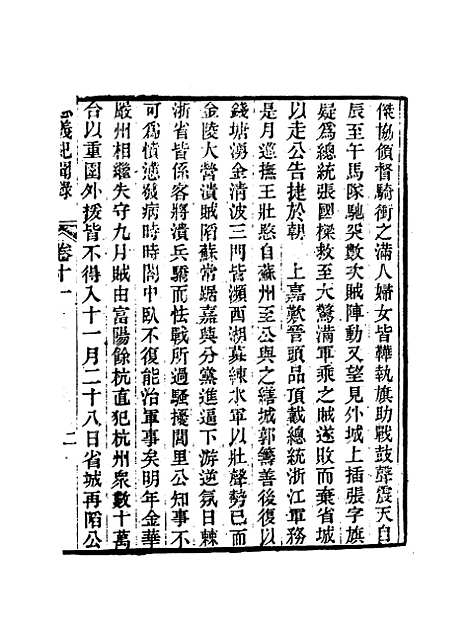 傑協領督騎衝之滿人婦女皆鞾執旗助戰鼓聲震天自
辰至午馬隊馳突數次賊陣動又望見外城上插張字旗
疑爲總統張國樑救至大驚滿軍乘之賊遂敗而棄省城
以走公告捷於朝 上嘉歎晉頭品頂戴總統浙江軍務
是月巡撫王壯愍自蘇州至公與之繕城郭籌善後復以
錢塘湧金清波三門皆瀕西湖募練水軍以壯聲勢已而
金陵大營潰賊陷蘇常踞嘉興分黨進逼下游逆氛日棘
浙省皆係客將潰兵驕而怯戰所過騷擾閭里公知事不
可爲憤懣發病時時閤中臥不復能治軍事矣明年金華
嚴州相繼失守九月賊由富陽餘杭直犯杭州衆數十萬
台以重圍外援皆不得入十一月二十八日省城再陷公
義記聞錄 卷十一 二